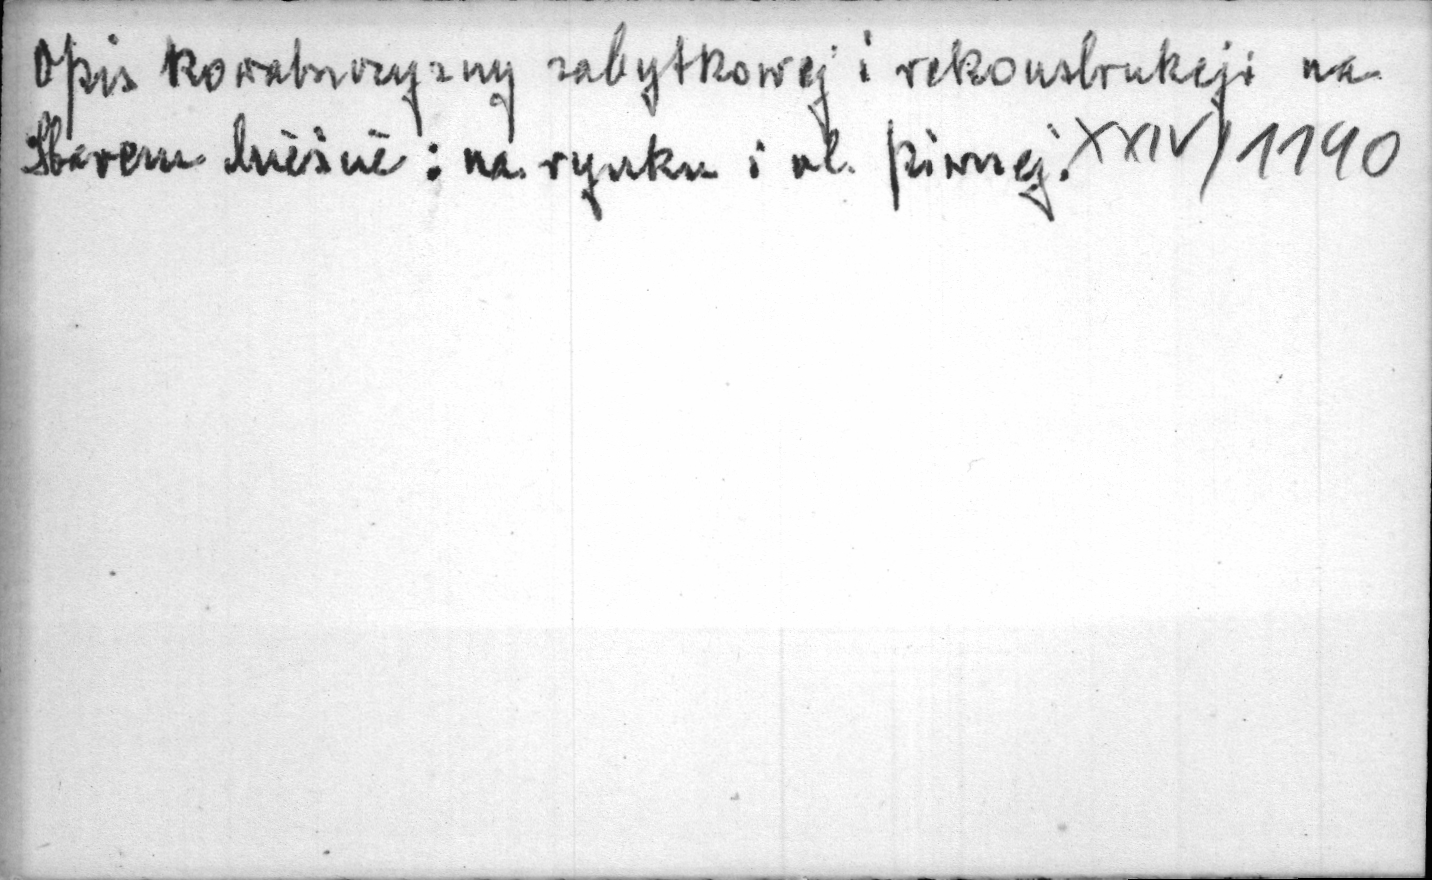 Opis kowalszczyzny zabytkowej i rekonstrukcji na
Starem Mieście: na rynku i ul. piwnej. XXIV/1190